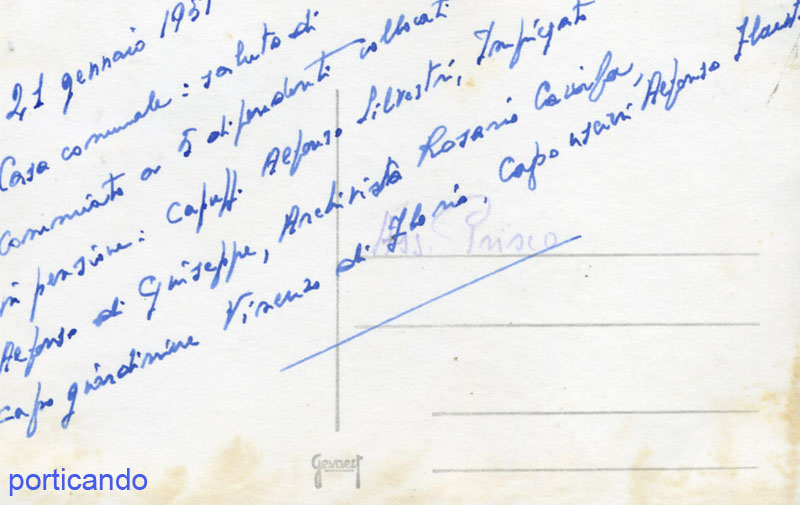 21 gennaio 1951
Casa comunale: saluto di
commiato a 5 dipendenti collocati
in pensione: Capuff. Alfonso Silvestri, Impiegato
Alfonso di Giuseppe, Archivista Rosario
capo giardiniere Vincenzo di Florio, capo uscieri Alfonso
Ass. Prisco
Gevaert
porticando